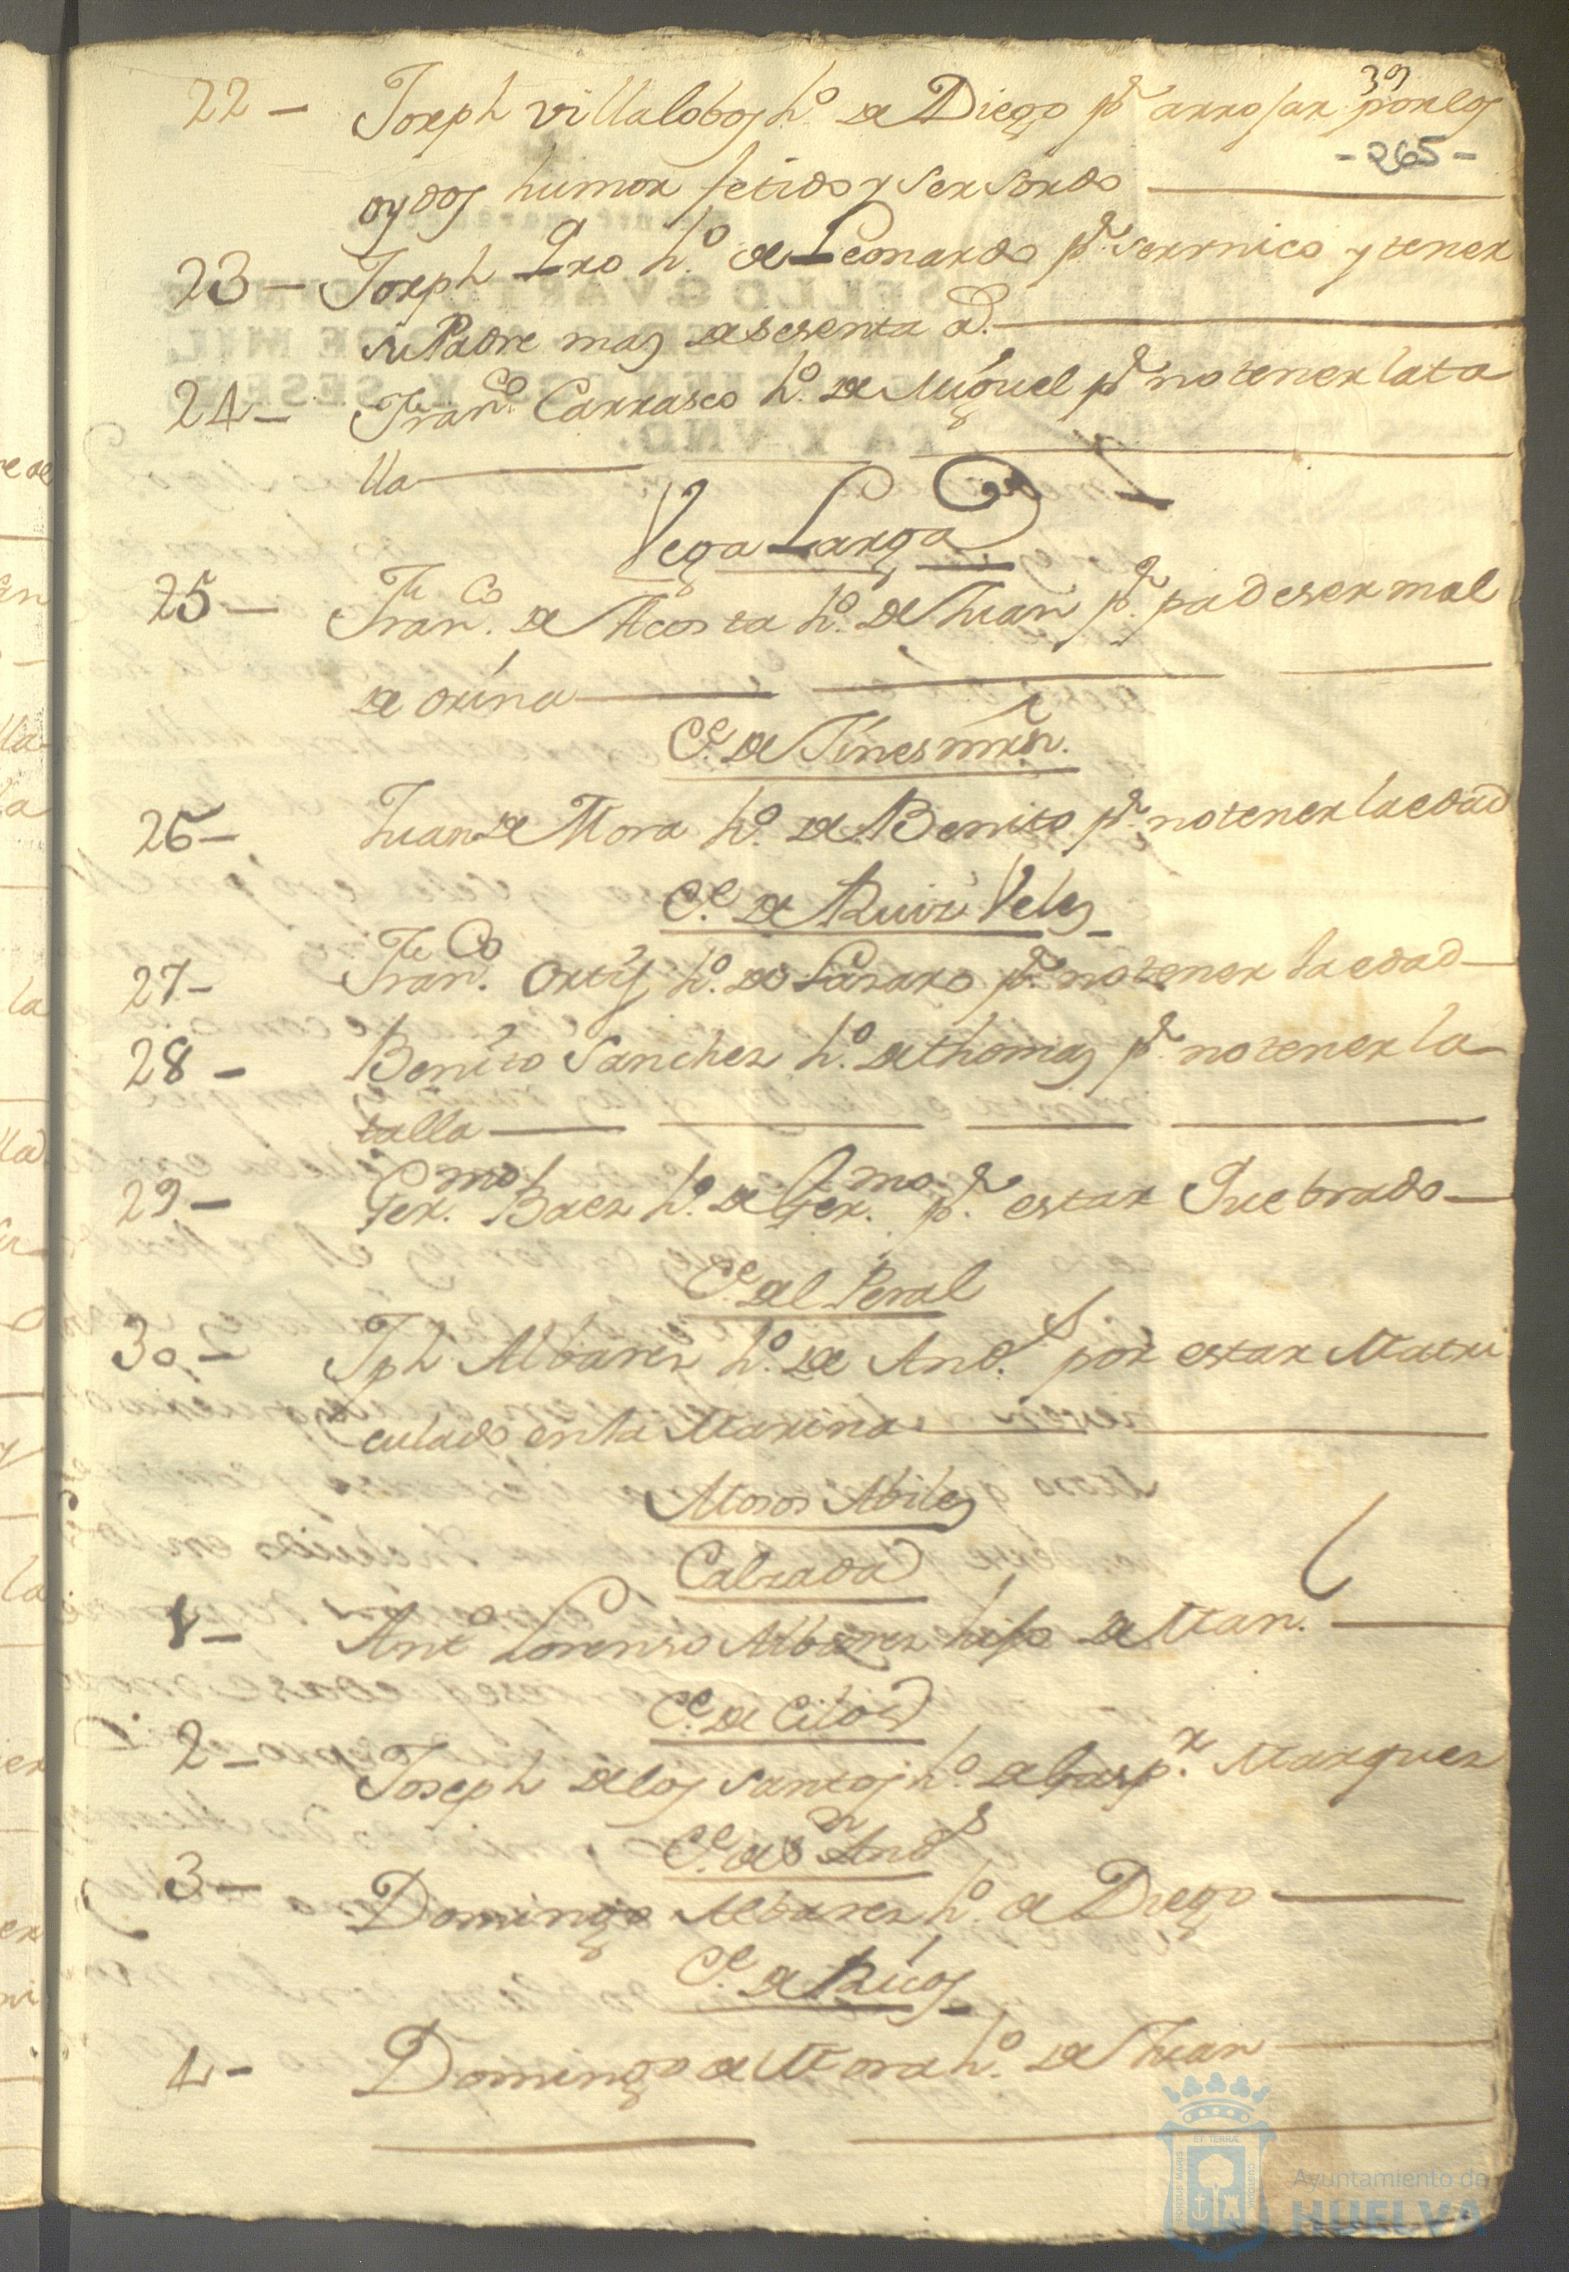 39
22 – Joseph Villalobos h.º de Diego p.r arrojar por los
- 265 -
oydos humor fetido y ser sordo
23 – Joseph h.º de Leonardo p.r ser unico y tener
su Padre mas de sesenta a.s
24 – Fran.co Carrasco h.º de Miguel p.r no tener la ta
lla
Vega Larga
25 – Fran.co de Acosta h.º de Juan p.r padeser mal
de orina
C.e de Jines mrn.
26 – Juan de Mora h.º de Benito p.r no tener la edad
C.e de Rui Veles
27 – Fran.co Ortis h.º de Lasaro p.r no tener la edad
28 – Benito Sanchez h.º de thomas p.r no tener la
talla
29 – Ger.mo Baez h.º de Ger.mo p.r estar Quebrado
C.e del Peral
30 – Jph Albarez h.º de And.s por estar Matri
culado en la Marina
Mosos Abiles
Calzada
1 – Ant.º Lorenzo Albarez hijo de Man.l
C.e de Silos
2 – Joseph de los Santos h.º de Gasp.r Marquez
C.e de S.n And.s
3 – Domingo Albarez h.º de Diego
C.e de Ricos
4 – Domingo de Mora h.º de Juan
PORTUS MARIS ET TERRÆ CUSTODIA
Ayuntamiento de
HUELVA